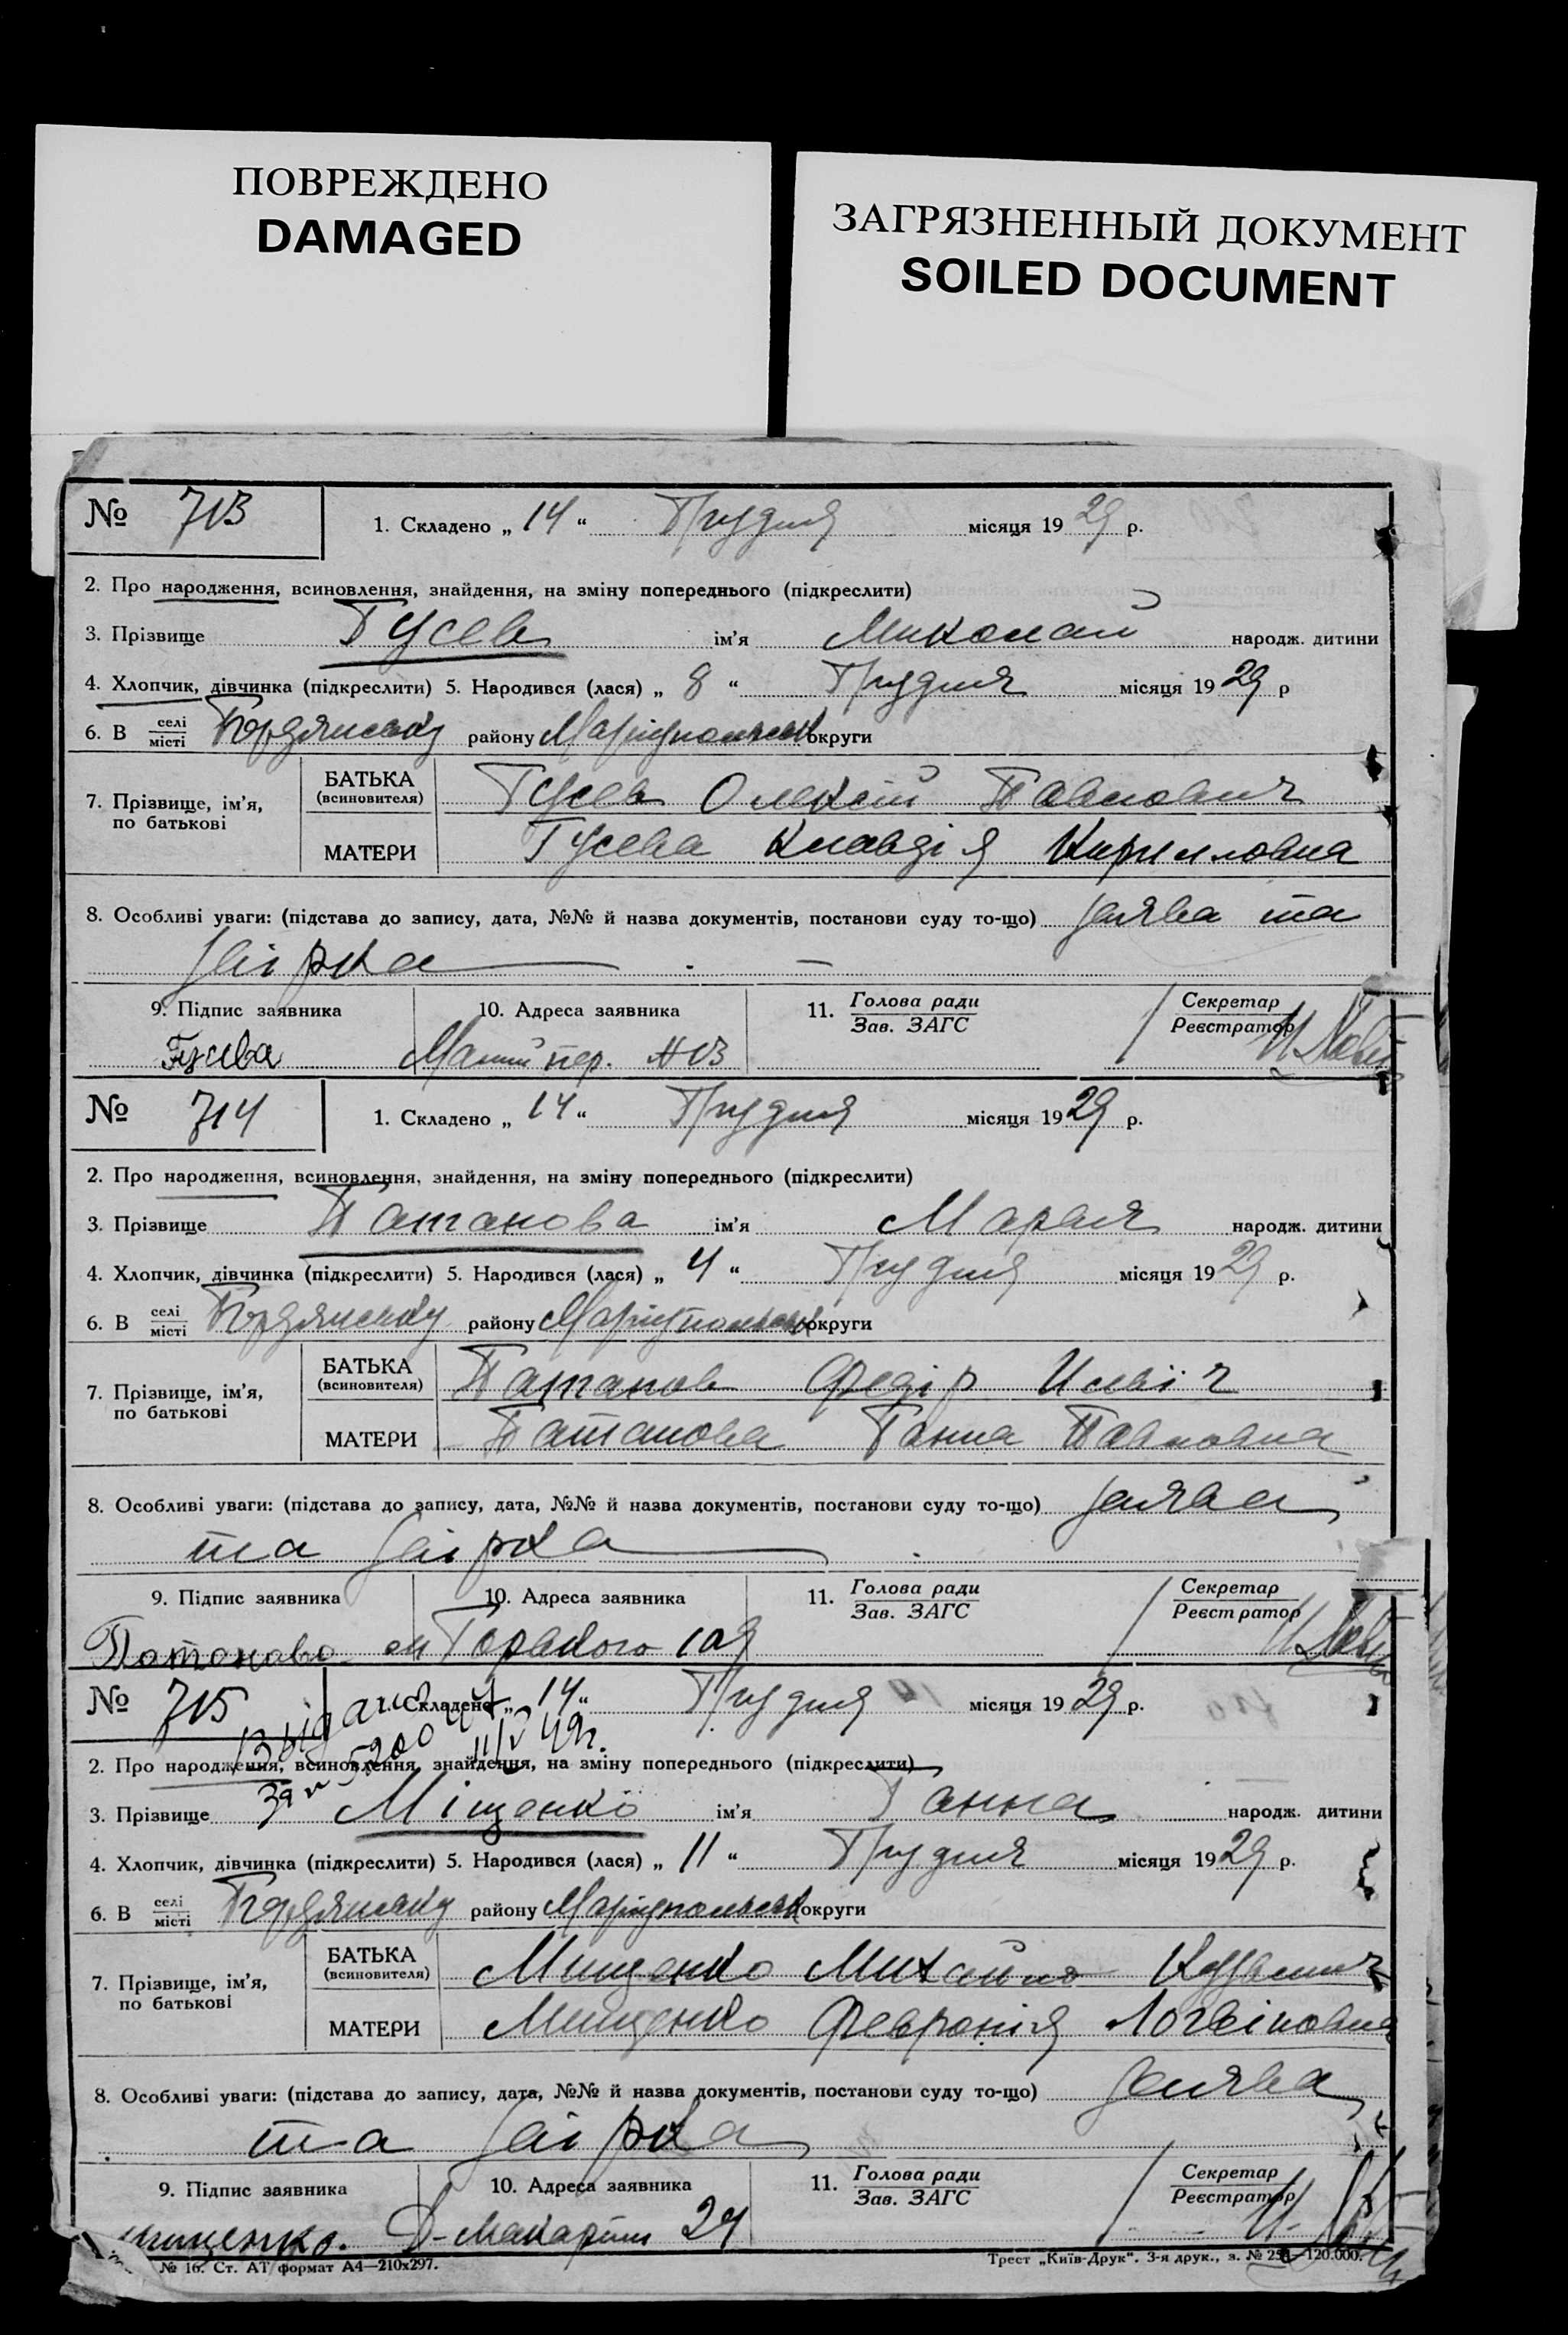 ПОВРЕЖДЕНО
DAMAGED
ЗАГРЯЗНЕННЫЙ ДОКУМЕНТ
SOILED DOCUMENT
№ 713 1. Складено „ 14 “ Грудня місяця 19 29 р.
2. Про народження, всиновлення, знайдення, на зміну попереднього (підкреслити)
3. Прізвище Гусев ім’я Миколай народж. дитини
4. Хлопчик, дівчинка (підкреслити) 5. Народився (лася) „ 8 “ Грудня місяця 19 29 р
6. В селі місті Бердянську району Маріупольськ округи
7. Прізвище, ім’я, по батькові
БАТЬКА (всиновителя) Гусев Олексій Павлович
МАТЕРИ Гусева Клавдія Кирилловна
8. Особливі уваги: (підстава до запису, дата, №№ й назва документів, постанови суду то-що) заява та
довідка
9. Підпис заявника 10. Адреса заявника 11. Голова ради Зав. ЗАГС Секретар Реєстратор
Гусева Малий пер. №13
№ 714 1. Складено „ 14 “ Грудня місяця 19 29 р.
2. Про народження, всиновлення, знайдення, на зміну попереднього (підкреслити)
3. Прізвище Патанова ім’я Мария народж. дитини
4. Хлопчик, дівчинка (підкреслити) 5. Народився (лася) „ 4 “ Грудня місяця 19 29 р.
6. В селі місті Бердянську району Маріупольськ округи
7. Прізвище, ім’я, по батькові
БАТЬКА (всиновителя) Федір Ильіч
МАТЕРИ Ганна Павловна
8. Особливі уваги: (підстава до запису, дата, №№ й назва документів, постанови суду то-що) заява
та
9. Підпис заявника 10. Адреса заявника 11. Голова ради Зав. ЗАГС Секретар Реєстратор
Горького 109
№ 715 1. Складено „ 14 “ Грудня місяця 19 29 р.
Выдано
11/V 49г.
2. Про народження, всиновлення, знайдення, на зміну попереднього (підкреслити)
3. Прізвище Міщенко ім’я Ганна народж. дитини
4. Хлопчик, дівчинка (підкреслити) 5. Народився (лася) „ 11 “ Грудня місяця 19 29 р.
6. В селі місті Бердянську району Маріупольськ округи
7. Прізвище, ім’я, по батькові
БАТЬКА (всиновителя) Мищенко Михайло Кузьмич
МАТЕРИ Мищенко Февронія Логвіновна
8. Особливі уваги: (підстава до запису, дата, №№ й назва документів, постанови суду то-що) заява
та
9. Підпис заявника 10. Адреса заявника 11. Голова ради Зав. ЗАГС Секретар Реєстратор
24
№ 16. Ст. АТ формат А4—210х297. Трест „Київ-Друк“. 3-я друк., з. № 120.000.